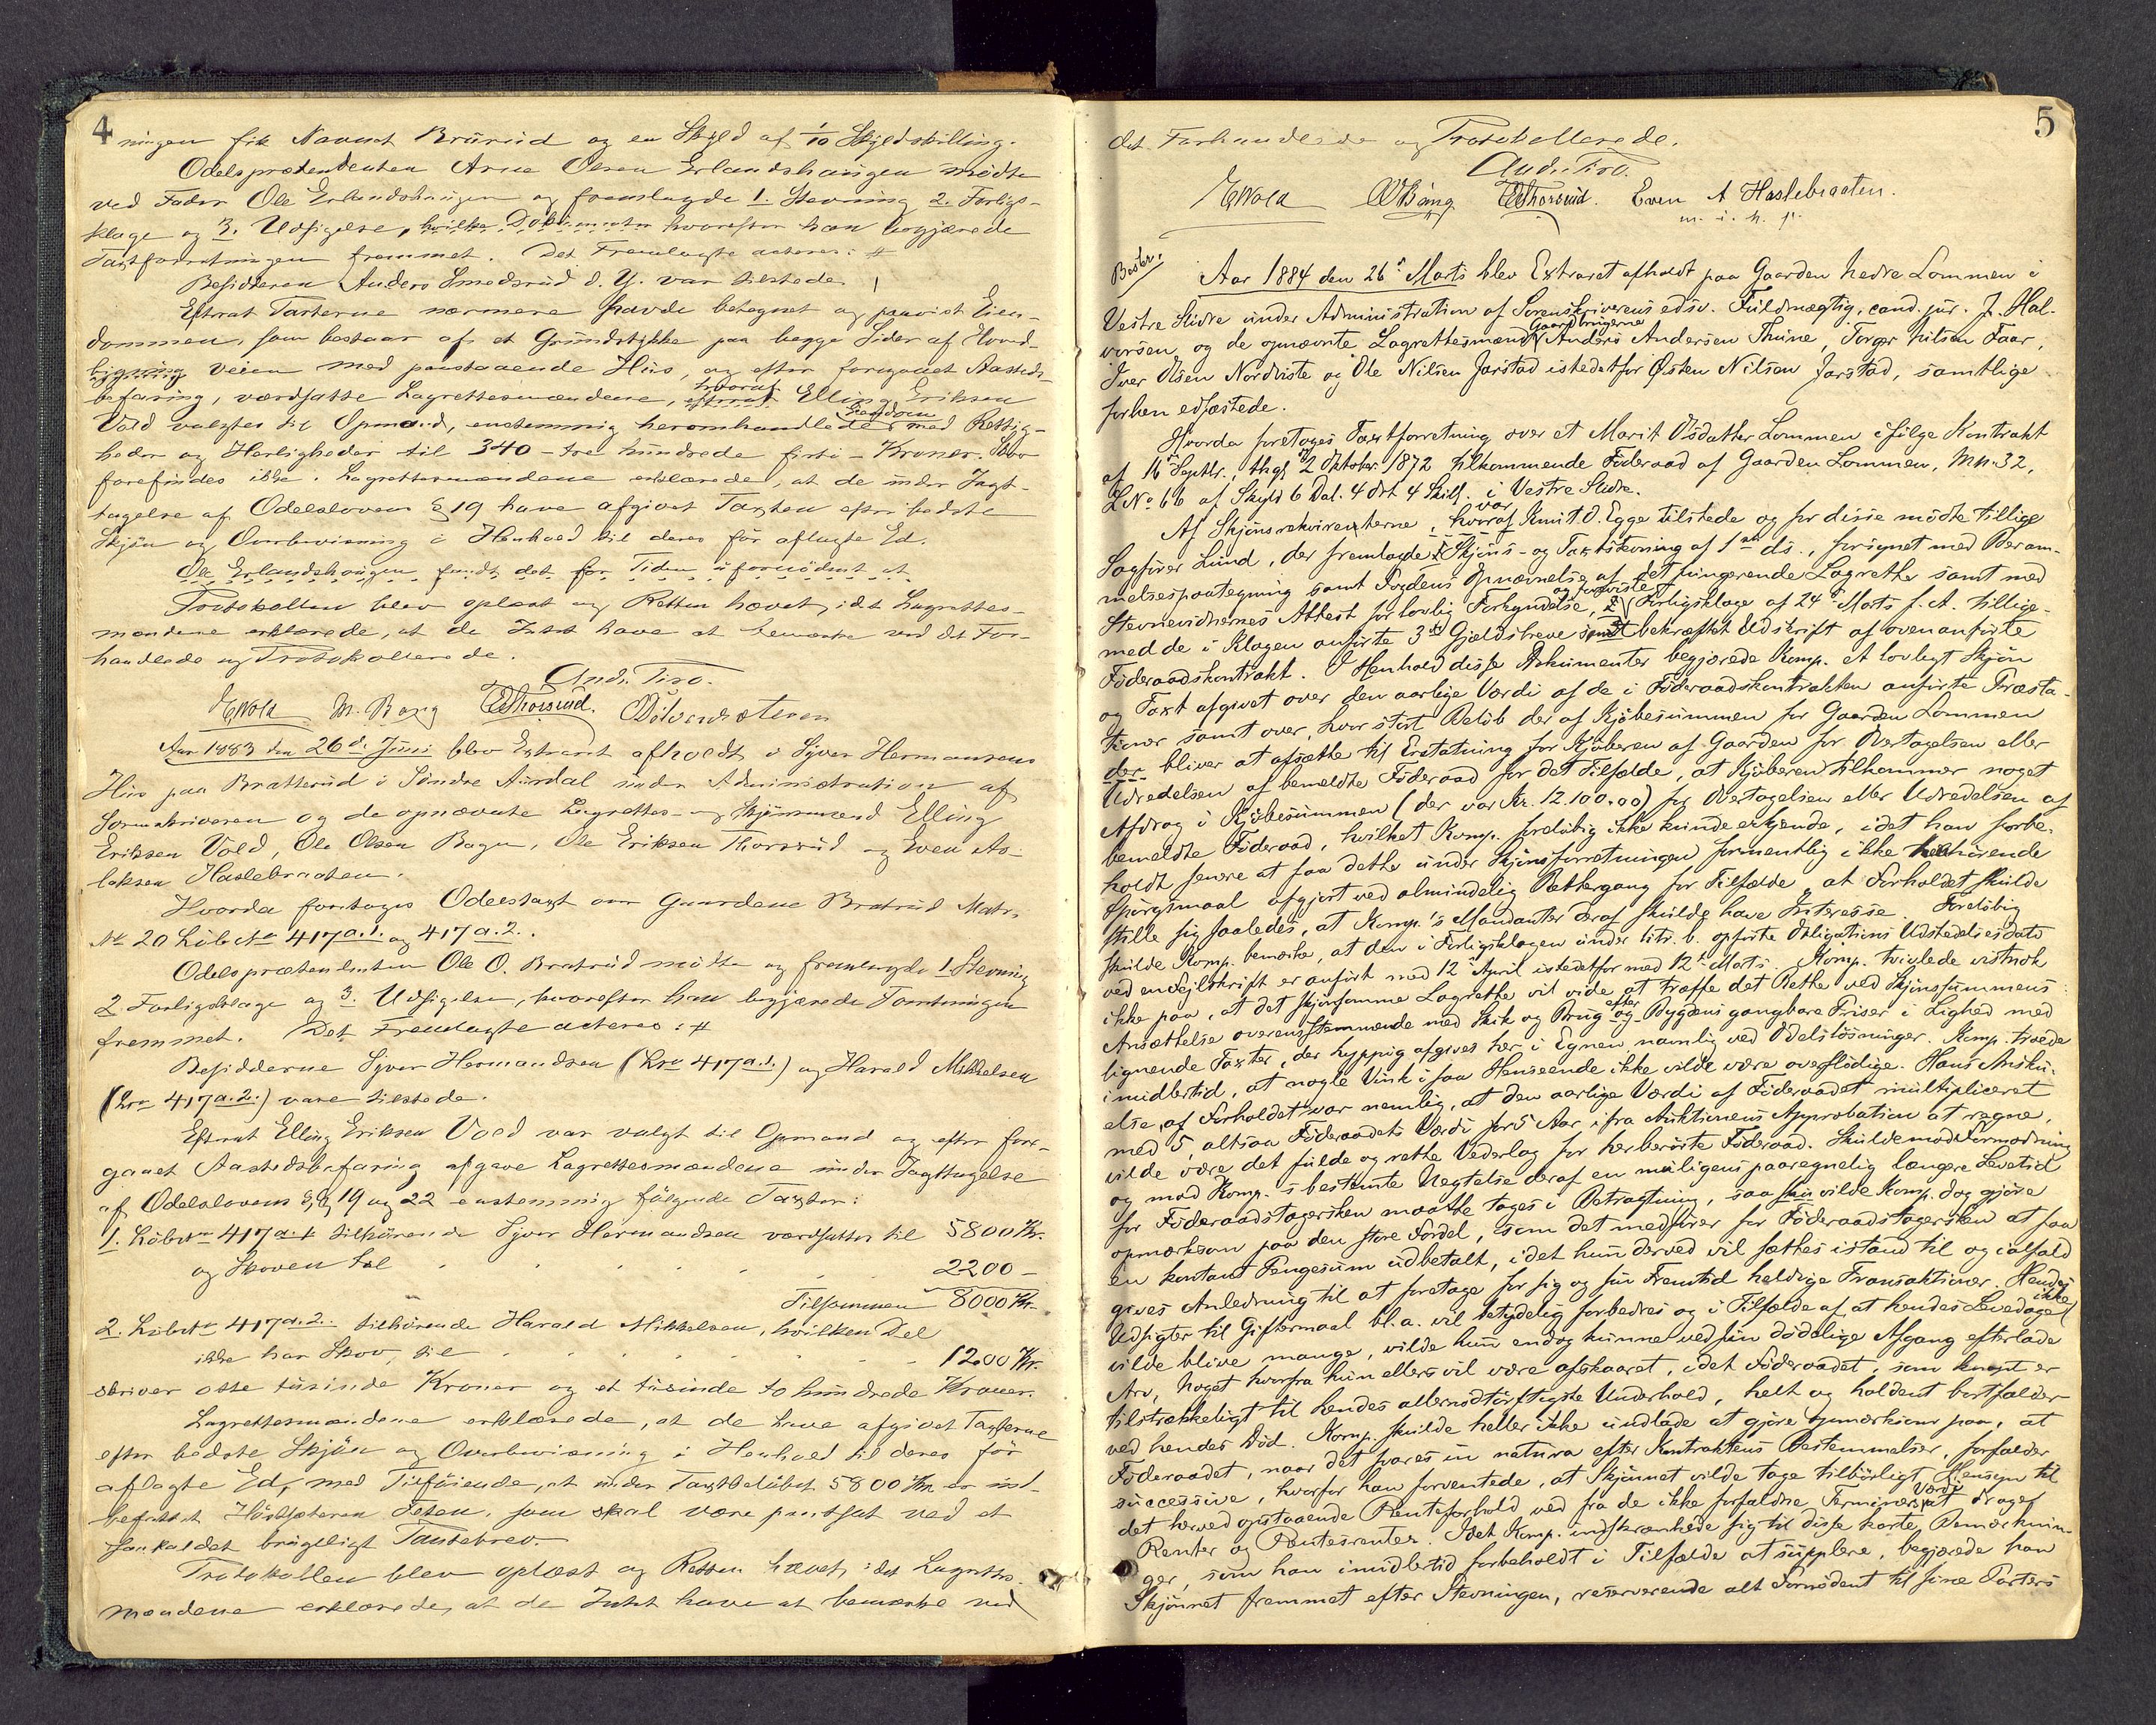 4
ningen fik Navnet Brurud og en Skyld af 1/10 Skyldskilling.
Odelsprætendenten Arne Olsen Erlandshaugen mødte
ved Fader Ole Erlandshaugen og fremlagde 1. Stevning 2. Forligs-
klage og 3. Udsigelse, hvilke Dokumenter hvorefter han begjærede
Taxtforretningen fremmet. Det Fremlagte acteres: #
Besidderen Anders Smedsrud d. Y. var tilstede.
Efterat Parterne nærmere havde betegnet og paavist Eien-
dommen, som bestaar af et Grundstykke paa begge Sider af Hoved-
veien med paastaaende Hus, og efter foregaaet Aasteds-
befaring, værdsatte Lagrettesmændene, efterat hvoraf Elling Eriksen
Vold valgtes til Opmand, enstemmig heromhandlede Eiendom med Rettig-
heder og Herligheder til 340 - tre hundrede firti - Kroner. Skov
forefindes ikke. Lagrettesmændene erklærede, at de under Iagt-
tagelse af Odelslovens § 19 have afgivet Taxten efter bedste
Skjøn og Overbevisning i Henhold til deres før aflagte Ed.
Ole Erlandshaugen fandt det for Tiden ufornødent at
Protokollen blev oplæst og Retten hævet, idet Lagrettes-
mændene erklærede, at de Intet have at bemærke ved det For-
handlede og Protokollerede.
And. Piro.
EEVold M. Bang OEThorsrud. Ødlvendsteren
Aar 1883 den 26d. Juni blev Extraret afholdt i Syver Hermansens
Hus paa Bratterud i Søndre Aurdal under Administration af
Sorenskriveren og de opnævnte Lagrettes- og Skjønsmænd Elling
Eriksen Vold, Ole Olsen Bagn, Ole Eriksen Thorsrud og Even As-
laksen Haslebraaten.
Hvorda foretoges Odelstaxt over Gaardene Bratrud Matr.
No 20 Løbeno 417a.1. og 417a.2.
Odelsprætendenten Ole O. Bratrud mødte og fremlagde 1. Stevning
2. Forligsklage og 3. Udsigelse, hvorefter han begjærede Forretningen
fremmet. Det Fremlagte acteres: #
Besidderne Syver Hermandsen (Lno 417a.1.) og Harald Mikkelsen
(Lno 417a.2.) vare tilstede.
Efterat Elling Eriksen Vold var valgt til Opmand og efter fore-
gaaet Aastedsbefaring afgave Lagrettesmændene under Iagttagelse
af Odelslovens §§ 19 og 22 enstemmig følgende Taxter:
1. Løbeno 417a.1 tilhørende Syver Hermandsen værdsattes til 5800 Kr.
og Skoven til 2200 -
Tilsammen 8000 Kr.
2. Løbeno 417a.2. tilhørende Harald Mikkelsen, hvilken Del
ikke har Skov, til 1200 Kr.
skriver otte tusinde Kroner og et tusinde to hundrede Kroner.
Lagrettesmændene erklærede, at de have afgivet Taxterne
efter bedste Skjøn og Overbevisning i Henhold til deres før
aflagte Ed, med Tilføiende, at under Taxtbeløbet 5800 Kr. er ind-
befattet Høstsæteren Feten, som skal være pantsat ved et
saakaldet brugeligt Pantebrev.
Protokollen blev oplæst og Retten hævet, idet Lagrettes-
mændene erklærede, at de Intet have at bemærke ved
5
det Forhandlede og Protokollerede.
And. Piro.
EEVold OOBang OEThorsrud. Even A Haslebraaten.
m. i. h. p.
Aar 1884 den 26de Marts blev Extraret afholdt paa Gaarden nedre Lommen i
Vestre Slidre under Administration af Sorenskriverens edsv. Fuldmægtig, cand. jur. J. Hal-
vorsen og de opnævnte Lagrettesmænd Gaardbrugerne Anders Andersen Thune, Torger Nilsen Faar,
Iver Olsen Nordviste og Ole Nilsen Jarstad istedetfor Østen Nilsen Jarstad, samtlige
forhen edfæstede.
Hvorda foretoges Taxtforretning over et Marit Olsdatter Lommen ifølge Kontrakt
af 16de Septbr., thgl. 2 Oktober 1872 tilkommende Føderaad af Gaarden Lommen, Mn. 32,
LNo 66 af Skyld 6 Dal. 4 Ort 4 Skill. i Vestre Slidre.
Af Skjønsrekvirenterne var hvoraf Knut O. Egge tilstede og for disse mødte tillige
Sagfører Lund, der fremlagde 1 Skjøns- og Taxtstevning af 1ste ds., forsynet med Beram-
melsespaategning samt Fogdens Opnævnelse af det fungerende Lagrette samt med
Stevnevidnernes Attest for lovlig Forkyndelse, 2 og foreviste Forligsklage af 24de Marts f. A. tillige-
med de i Klagen anførte 3de Gjældsbreve samt bekræftet Udskrift af ovenanførte
Føderaadskontrakt. I Henhold disse Dokumenter begjærede Komp. et lovligt Skjøn
og Taxt afgivet over den aarlige Værdi af de i Føderaadskontrakten anførte Præsta-
tioner samt over, hvor stort Beløb der af Kjøbesummen for Gaarden Lommen
der bliver at afsætte til Erstatning for Kjøberen af Gaarden for Overtagelsen eller
Udredelsen af bemeldte Føderaad for det Tilfælde, at Kjøberen tilkommer noget
Afdrag i Kjøbesummen (der var Kr. 12.100.00) for Overtagelsen eller Udredelsen af
bemeldte Føderaad, hvilket Komp. foreløbig ikke kunde erkjende, idet han forbe-
holdt senere at faa dette under Skjønsforretningen formentlig ikke henhørende
Spørgsmaal afgjort ved almindelig Rettergang for Tilfælde, at Forholdet skulde
stille sig saaledes, at Komp.'s Mandanter deraf skulde have Interesse. Foreløbig
skulde Komp. bemærke, at den i Forligsklagen under litr. b. opførte Obligations Udstedelsesdato
ved en Fejlskrift er anført med 12te April istedetfor med 12te Marts. Komp. tvivlede vistnok
ikke paa, at det skjønsomme Lagrette vil vide at træffe det Rette ved Skjønssummens
Ansættelse overensstemmende med Skik og Brug og efter Bygdens gangbare Priser i Lighed med
lignende Taxter, der hyppig afgives her i Egnen navnlig ved Odelsløsninger. Komp. troede
imidlertid, at nogle Vink i saa Henseende ikke vilde være overflødige. Hans Ansku-
else af Forholdet var nemlig, at den aarlige Værdi af Føderaadet multipliceret
med 5, altsaa Føderaadets Værdi for 5 Aar, ifra Auktionens Approbation at regne,
vilde være det fulde og rette Vederlag for herberørte Føderaad. Skulde mod Formodning
og mod Komp.'s bestemte Negtelse deraf en muligens paaregnelig længere Levetid
for Føderaadstagersken maatte tages i Betragtning, saa vilde Komp. dog gjøre
opmærksom paa den store Fordel, som det medfører for Føderaadstagersken at faa
en kontant Pengesum udbetalt, idet hun derved vil sættes istand til og ialfald
gives Anledning til at foretage for sig og sin Fremtid heldige Transaktioner. Hendes
Udsigter til Giftermaal bl. a. vil betydelig forbedres og i Tilfælde af at hendes Levedage ikke
vilde blive mange, vilde hun endog kunne ved sin dødelige Afgang efterlade
Arv, noget hvorfra hun ellers vil være afskaaret, idet Føderaadet, som knapt er
tilstrækkeligt til hendes allernødtørftigste Underhold, helt og holdent bortfalder
ved hendes Død. Komp. skulde heller ikke undlade at gjøre opmærksom paa, at
Føderaadet, naar det svares in natura efter Kontraktens Bestemmelser, forfalder
successive, hvorfor han forventede, at Skjønnet vilde tage tilbørligt Hensyn til
det herved opstaaende Renteforhold ved fra de ikke forfaldne Terminers Værdi at drages
Renter og Rentesrenter. Idet Komp. indskrænkede sig til disse korte Bemærknin-
ger, som han imidlertid forbeholdt i Tilfælde at supplere, begjærede han
Skjønnet fremmet efter Stevningen, reserverende alt Fornødent til sine Parters